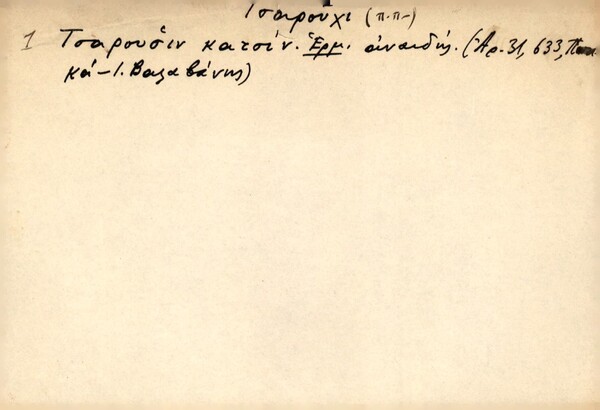 Τσαρούχι (π.π-)
1 Τσαρουσιν κατσίν. Ἑρμ. ἀναιδής. (Ἀρ. 31, 633,
κά - Ι. Βαλαβάνης)